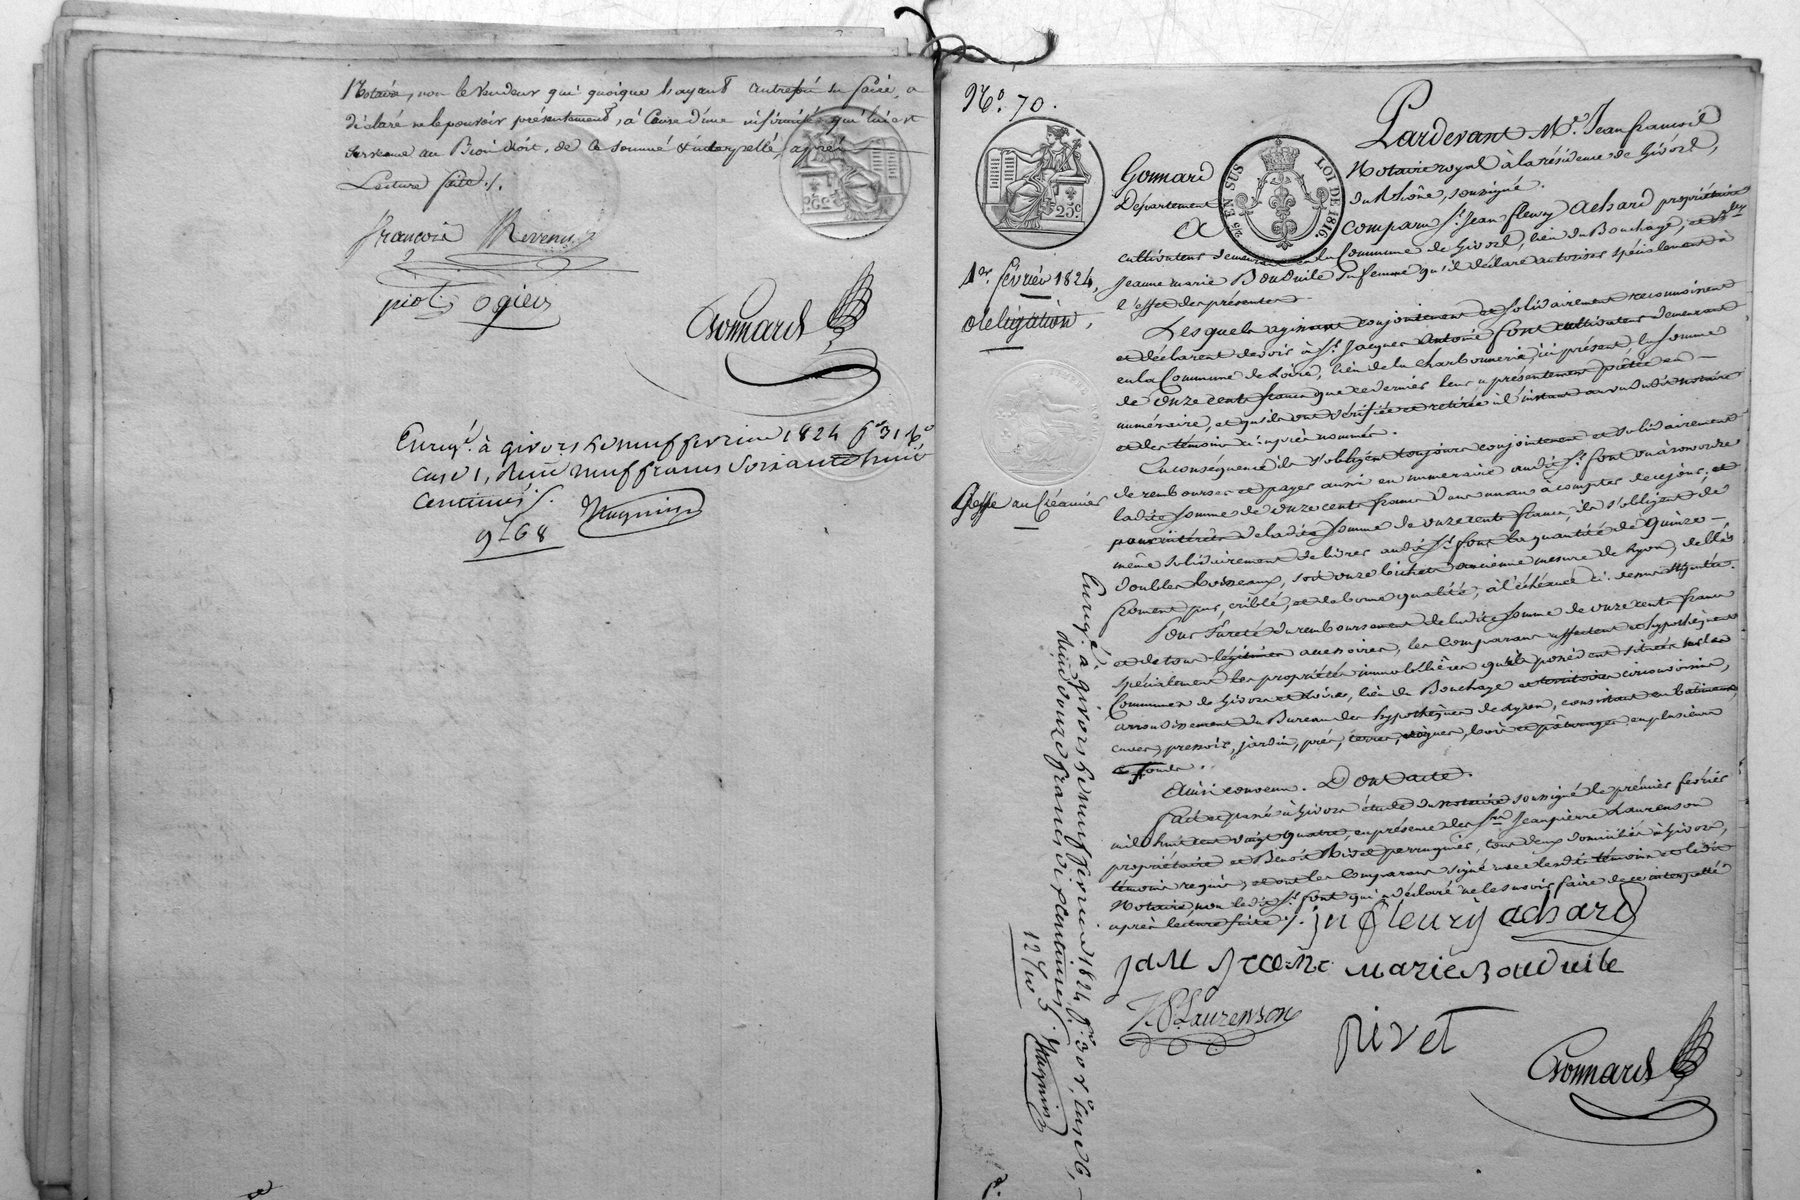 Notaire, non le vendeur qui quoique l'ayant autrefois su faire, a
déclaré ne le pouvoir présentement, à cause d'une infirmité qui lui est
survenue au Bras droit, de ce sommé & interpellé, après
Lecture faite ./.
françois Revenu
piot ogier
Gonnard
Enreg.é à givors le neuf fevrier 1824 f.o 31 r.o
case 1, reçu neuf francs soixante huit
centimes ./.
9f 68
N.o 70.
Pardevant M.e Jean françois
Gonnard Notaire royal à la résidence de Givors,
Département du Rhône, soussigné.
25 EN SUS
LOI DE 1816.
25c
comparu S.r Jean fleury Achard propriétaire
cultivateur demeurant en la Commune de Givors, lieu du Bouchage, et
Jeanne marie Bonduile sa femme qu'il déclare autoriser spécialement à
l'effet des présentes.
1.er février 1824,
obligation,
Lesquels agissant conjointement et solidairement reconnoissent
et déclarent devoir à S.r Jacques Antoine font cultivateur demeurant
en la Commune de Loire, lieu de la charbonnerie, ici présent, la somme
de onze cents francs que ce dernier leur a présentement prêtée en
numéraire, et qu'ils ont vérifiée et retirée à l'instant au vu dudit notaire
et des témoins ci après nommés.
En conséquence ils s'obligent toujours conjointement et solidairement
de rembourser et payer aussi en numéraire audit S.r font ou à son ordre
Grosse au Créancier
ladite somme de onze cents francs dans un an à compter de ce jour; et
pour intérêts de ladite somme de onze cents francs, ils s'obligent de
même solidairement de livrer audit S.r font la quantité de quinze
doubles boisseaux, soit onze bichets ancienne mesure de Lyon, de bled
froment pur, criblé, et de bonne qualité, à l'échéance ci-dessus stipulée.
Pour sûreté du remboursement de ladite somme de onze cents francs
et de tous légitimes accessoires, les comparans affectent et hypothèquent
spécialement les propriétés immobilières qu'ils possèdent situées sur les
Communes de Givors et Loire, lieu du Bouchage et territoires circonvoisins,
arrondissement du Bureau des hypothèques de Lyon, consistant en batimens,
cuves, pressoir, jardin, prés, terres, vignes, bois et pâturages, en plusieurs
fonds.
Ainsi convenu. Dont acte.
Fait et passé à Givors étude du notaire soussigné le premier février
mil huit cent vingt quatre, en présence des S.rs Jean pierre Laurenson
propriétaire et Benoît Rivet perruquier, tous deux domiciliés à Givors,
témoins requis, et ont les comparans signé avec lesdits témoins et ledit
Notaire, non ledit S.r font qui a déclaré ne le savoir faire de ce interpellé
après lecture faite ./.
jn fleury achard
marie Bonduile
J. P. Laurenson
rivet
Gonnard
Enreg.é à givors le neuf fevrier 1824 f.o 30 v.o case 6,
reçu douze francs dix centimes ./.